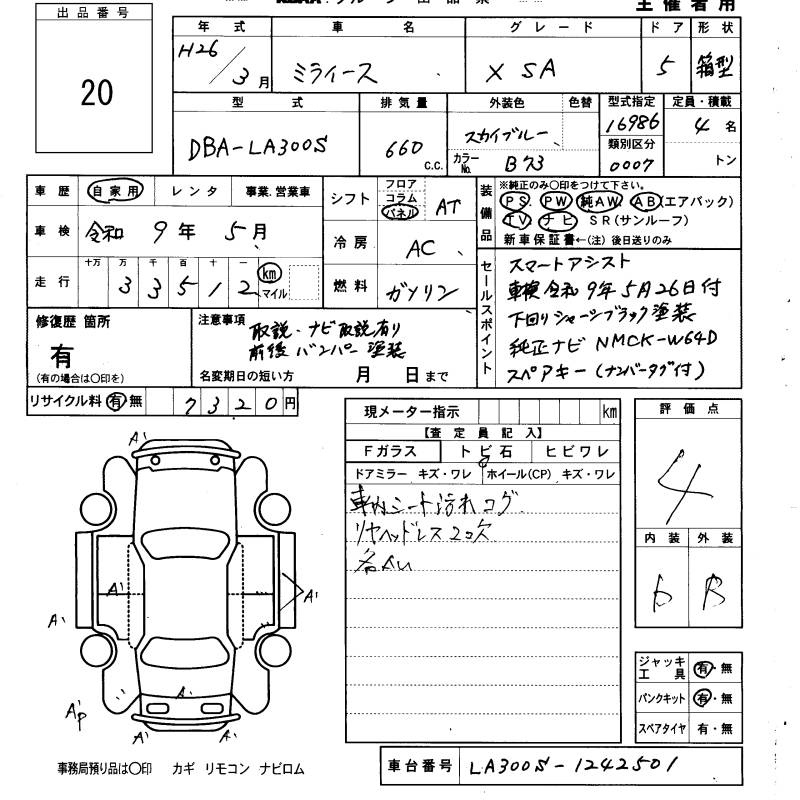 出品番号
20
主催者用
年式 車名 グレード ドア 形状
H26/3月 ミライース X SA 5 箱型
型式 排気量 外装色 色替 型式指定 定員・積載
DBA-LA300S 660 c.c. スカイブルー 16986 4名
カラーNo. B73 類別区分 0007 トン
車歴 自家用 レンタ 事業.営業車
車検 令和 9年 5月
走行 十万 万 千 百 十 一 km マイル
33512
シフト フロア コラム パネル AT
冷房 AC
燃料 ガソリン
装備品 ※純正のみ〇印をつけて下さい。
PS PW 純AW AB(エアバック)
TV ナビ SR(サンルーフ)
新車保証書←(注)後日送りのみ
セールスポイント
スマートアシスト
車検令和9年5月26日付
下回りシャーシブラック塗装
純正ナビ NMCK-W64D
スペアキー(ナンバータグ付)
修復歴 箇所
有
(有の場合は〇印を)
注意事項
取説・ナビ取説有り
前後バンパー塗装
名変期日の短い方 月 日まで
リサイクル料 有 無 7320円
現メーター指示 km
【査定員記入】
Fガラス トビ石 ヒビワレ
ドアミラー キズ・ワレ ホイール(CP) キズ・ワレ
車内シート汚れコゲ
リヤヘッドレス2ヶ欠
評価点
4
内装 外装
b B
A' A' A' A' A' A' A' A'p
ジャッキ工具 有・無
パンクキット 有・無
スペアタイヤ 有・無
事務局預り品は〇印 カギ リモコン ナビロム
車台番号 LA300S-1242501